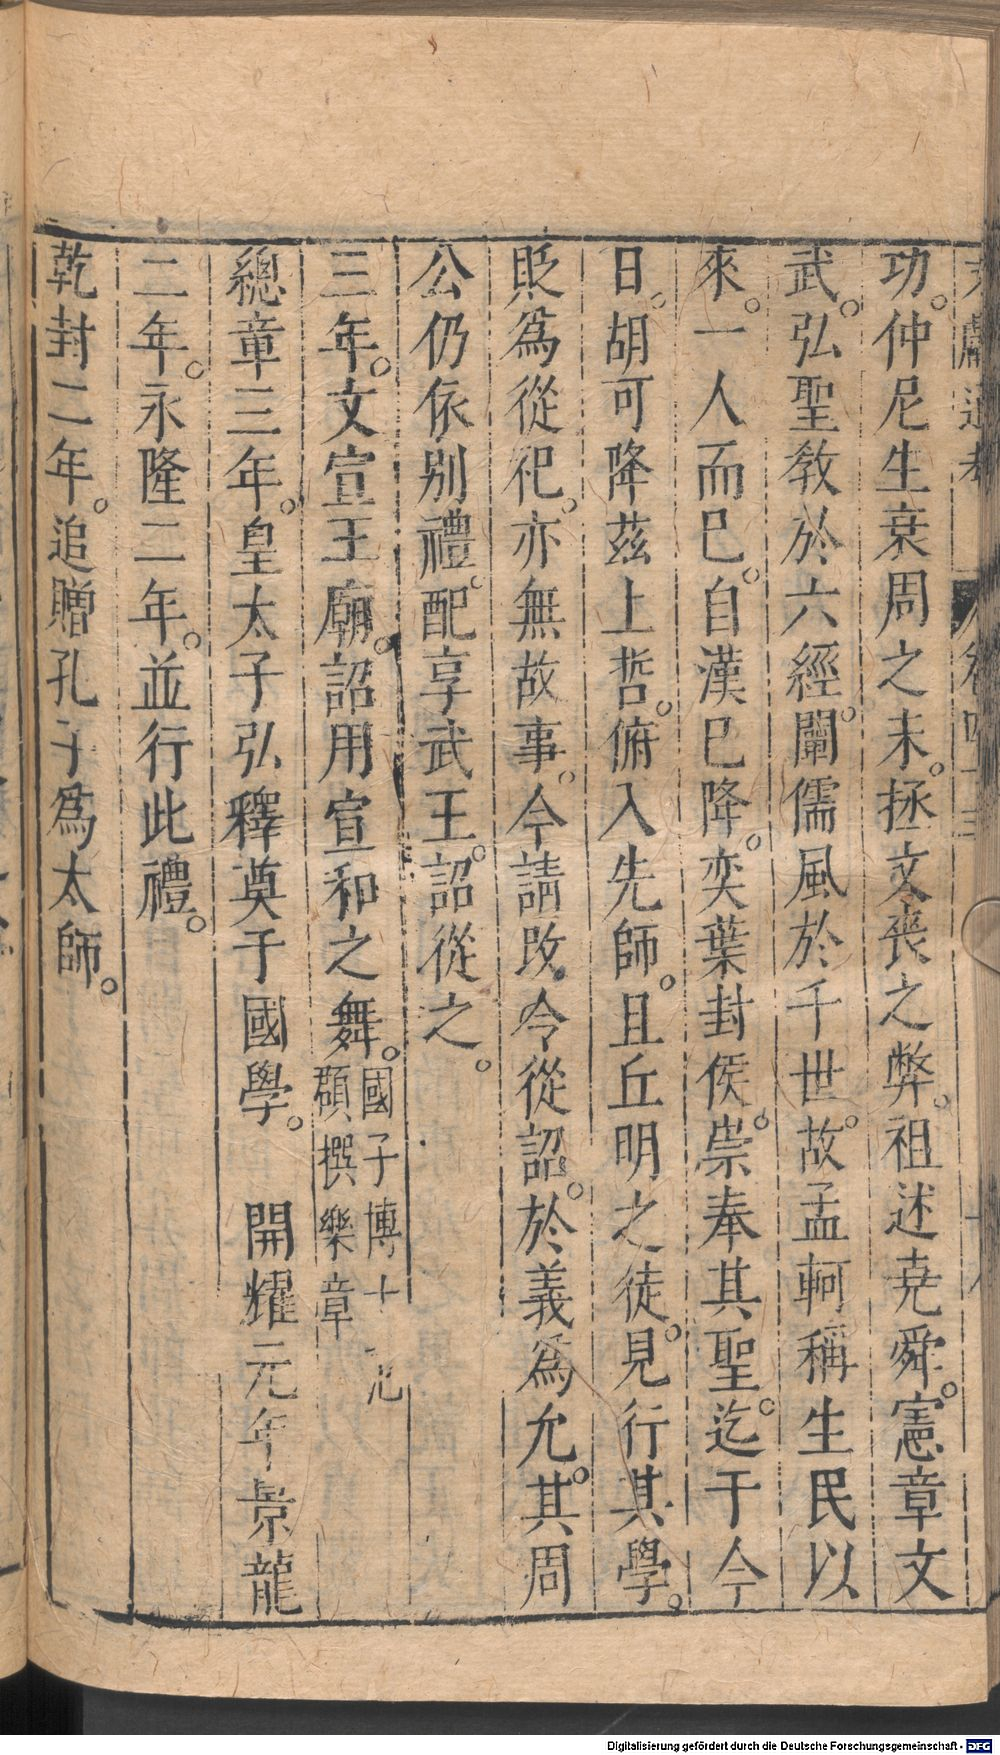 功。仲尼生衰周之末。拯文喪之弊。祖述尭舜。憲章文
武。弘聖教於六經。闡儒風於千世。故孟軻稱生民以
來。一人而已。自漢已降。奕葉封侯。崇奉其聖。迄于今
日。胡可降茲上哲。俯入先師。且丘明之徒。見行其學。
貶爲從祀。亦無故事。今請改。令從詔。於義爲允。其周
公仍依別禮。配享武王。詔從之。
三年。文宣王廟。詔用宣和之舞。國子博士范
頵撰樂章
總章三年。皇太子弘釋奠于國學。 開耀元年景龍
二年。永隆二年。並行此禮。
乾封二年。追贈孔子爲太師。
Digitalisierung gefördert durch die Deutsche Forschungsgemeinschaft - DFG